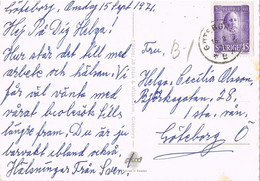 Göteborg, Onsdag 15 Sept 1971.
Hej På Dig Helga!
Hur står det till med
arbete och hälsan. Vi
får väl vänta med
vårat biobesök tills
längre fram. Du är ju
barvakt ibland också.
Hälsningar Från Sven
Fru. B-1
Helga, Cecilia Olsson,
28,
Göteborg Ö
GÖTEBORG
SVERIGE 45